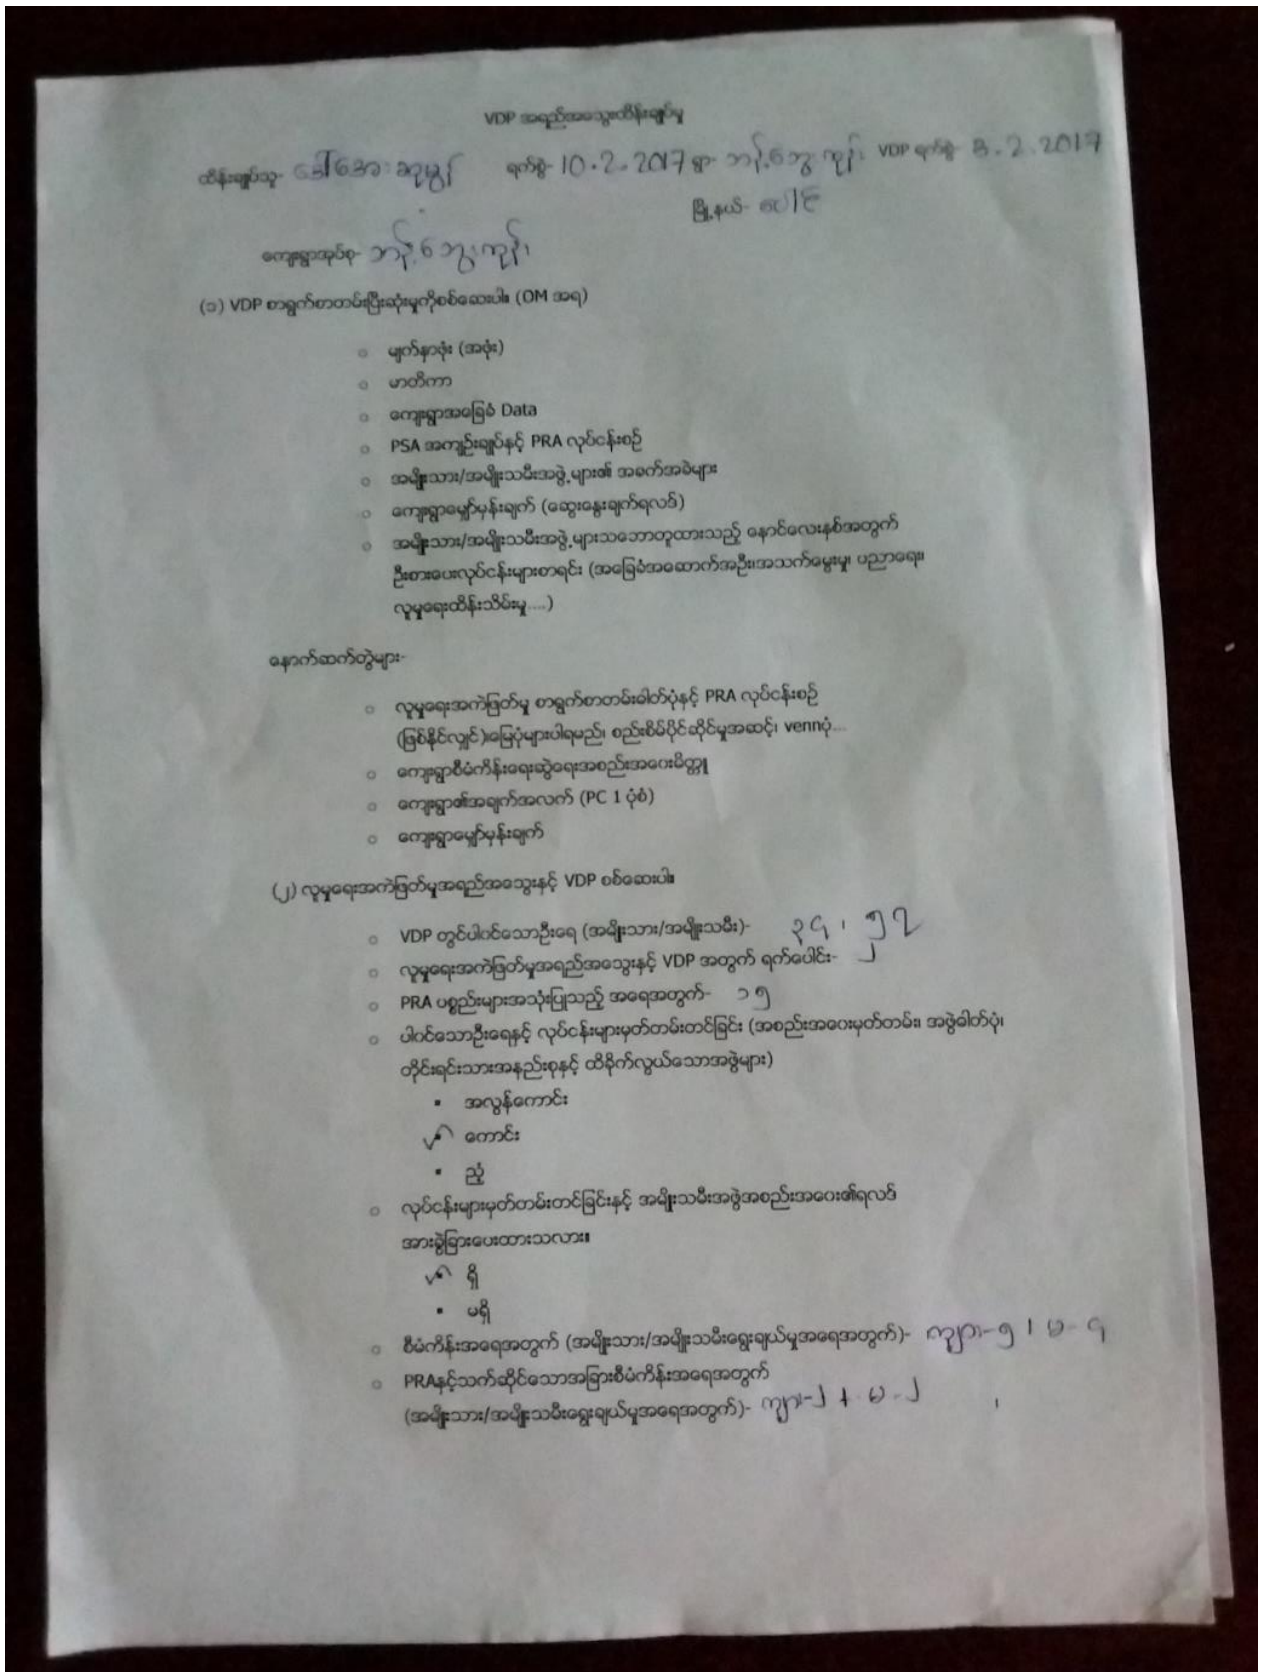 VDP အရည်အသွေးထိန်းချုပ်မှု
ထိန်းချုပ်သူ- ဒေါ်အေးဆုမွန် ရက်စွဲ- 10.2.2017 ရွာ- ဘန့်ဘွေးကုန်း VDP ရက်စွဲ- 8.2.2017
မြို့နယ်- ပေါင်
ကျေးရွာအုပ်စု- ဘန့်ဘွေးကုန်း
(၁) VDP စာရွက်စာတမ်းပြီးဆုံးမှုကိုစစ်ဆေးပါ။ (OM အရ)
○ မျက်နှာဖုံး (အဖုံး)
○ မာတိကာ
○ ကျေးရွာအခြေခံ Data
○ PSA အကျဉ်းချုပ်နှင့် PRA လုပ်ငန်းစဉ်
○ အမျိုးသား/အမျိုးသမီးအဖွဲ့များ၏ အခက်အခဲများ
○ ကျေးရွာမျှော်မှန်းချက် (ဆွေးနွေးချက်ရလဒ်)
○ အမျိုးသား/အမျိုးသမီးအဖွဲ့များသဘောတူထားသည့် နောင်လေးနှစ်အတွက်
ဦးစားပေးလုပ်ငန်းများစာရင်း (အခြေခံအဆောက်အဦး၊အသက်မွေးမှု၊ ပညာရေး၊
လူမှုရေးထိန်းသိမ်းမှု....)
နောက်ဆက်တွဲများ-
○ လူမှုရေးအကဲဖြတ်မှု စာရွက်စာတမ်းဓါတ်ပုံနှင့် PRA လုပ်ငန်းစဉ်
(ဖြစ်နိုင်လျှင်)၊မြေပုံများပါရမည်၊ စည်းစိမ်ပိုင်ဆိုင်မှုအဆင့်၊ vennပုံ...
○ ကျေးရွာစီမံကိန်းရေးဆွဲရေးအစည်းအဝေးမိတ္တူ
○ ကျေးရွာ၏အချက်အလက် (PC 1 ပုံစံ)
○ ကျေးရွာမျှော်မှန်းချက်
(၂) လူမှုရေးအကဲဖြတ်မှုအရည်အသွေးနှင့် VDP စစ်ဆေးပါ။
○ VDP တွင်ပါဝင်သောဦးရေ (အမျိုးသား/အမျိုးသမီး)- ၃၄ ၊ ၅၇
○ လူမှုရေးအကဲဖြတ်မှုအရည်အသွေးနှင့် VDP အတွက် ရက်ပေါင်း- ၂
○ PRA ပစ္စည်းများအသုံးပြုသည့် အရေအတွက်- ၁၅
○ ပါဝင်သောဦးရေနှင့် လုပ်ငန်းများမှတ်တမ်းတင်ခြင်း (အစည်းအဝေးမှတ်တမ်း၊ အဖွဲဓါတ်ပုံ၊
တိုင်းရင်းသားအနည်းစုနှင့် ထိခိုက်လွယ်သောအဖွဲများ)
▪ အလွန်ကောင်း
✓ ကောင်း
▪ ညံ့
○ လုပ်ငန်းများမှတ်တမ်းတင်ခြင်းနှင့် အမျိုးသမီးအဖွဲအစည်းအဝေး၏ရလဒ်
အားခွဲခြားပေးထားသလား။
✓ ရှိ
▪ မရှိ
○ စီမံကိန်းအရေအတွက် (အမျိုးသား/အမျိုးသမီးရွေးချယ်မှုအရေအတွက်)- ကျား-၅ ၊ မ-၄
○ PRAနှင့်သက်ဆိုင်သောအခြားစီမံကိန်းအရေအတွက်
(အမျိုးသား/အမျိုးသမီးရွေးချယ်မှုအရေအတွက်)- ကျား-၂ + မ-၂